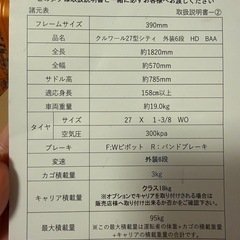 諸元表 取扱説明書一②
フレームサイズ 390mm
品名 クルワール27型シティ 外装6段 HD BAA
全長 約1820mm
全幅 約570mm
サドル高 約785mm
適応身長 158cm以上
車両重量 約19.0kg
タイヤ サイズ 27 X 1-3/8 WO
空気圧 300kpa
ブレーキ F:Wピボット R:バンドブレーキ
変速 外装6段
カゴ積載量 3kg
キャリア積載量 クラス18kg
※オプションでキャリアを取り付けされる場合は
販売店様へ取り付け依頼してください
最大積載量 95kg
※この最大積載量は運転者の体重+カゴの積載量
+キャリア積載量の合計です。